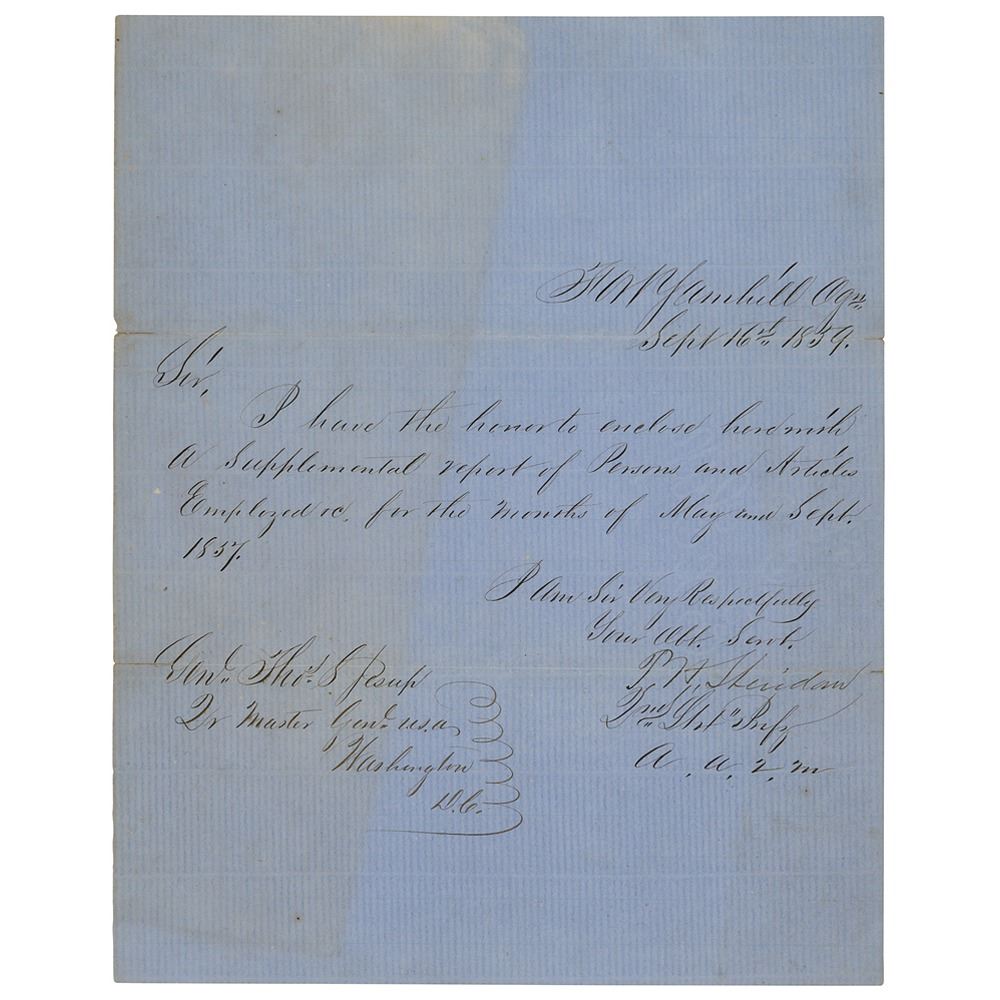 Fort Yamhill Ogn
Sept 16th 1859.
Sir,
I have the honor to enclose herewith
a Supplemental report of Persons and Articles
Employed &c. for the months of May and Sept.
1857.
I Am Sir Very Respectfully
Your Obt. Servt.
P. H. Sheridan
2nd Lieut Infy
A. A. Q. M
Genl. Thos. S Jesup
Qr Master Genl. U.S.A
Washington
D.C.